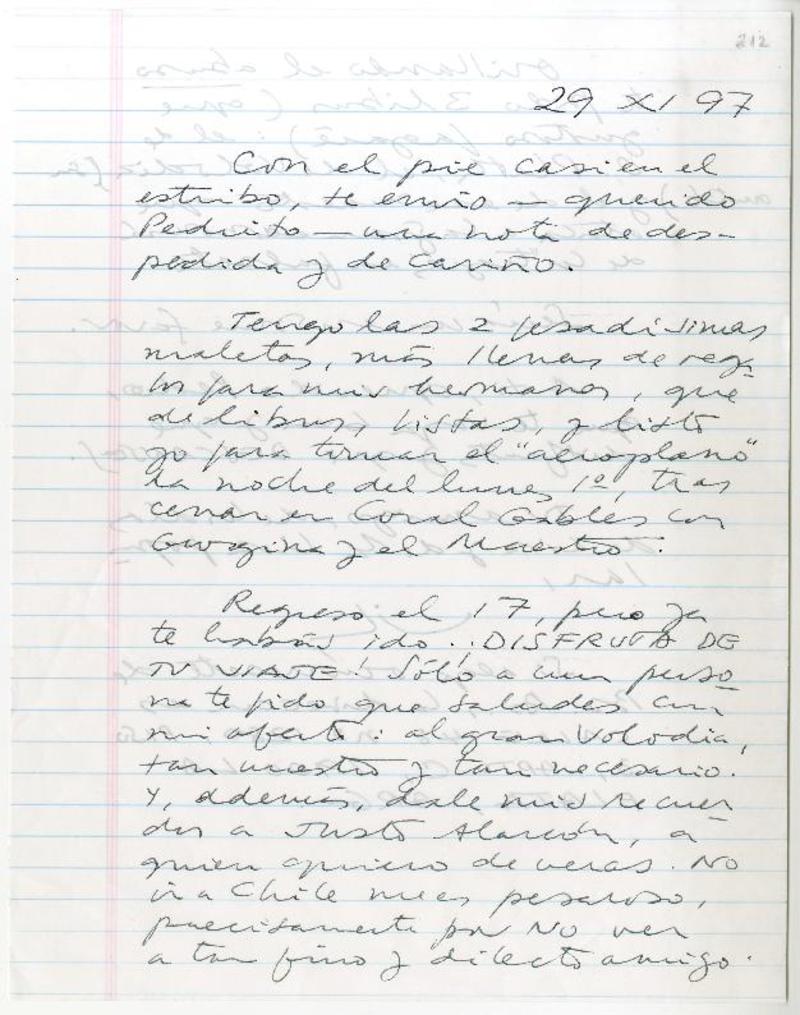 212
29 XI 97
Con el pie casi en el
estribo, te envío — querido
Pedrito — una nota de des-
pedida y de cariño.
Tengo las 2 pesadísimas
maletas, más llenas de rega-
los para mis hermanos, que
de libros, listas, y listo
yo para tomar el "aeroplano"
la noche del lunes 1º, tras
cenar en Coral Gables con
Georgina y el Maestro.
Regreso el 17, pero ya
te habrás ido. ¡DISFRUTA DE
TU VIAJE! Sólo a una perso-
na te pido que saludes con
mi afecto: al gran Volodia,
tan nuestro y tan necesario.
Y, además, dale mis recuer-
dos a Justo Alarcón, a
quien quiero de veras. No
ir a Chile me es pesaroso,
precisamente por NO ver
a tan fino y dilecto amigo.